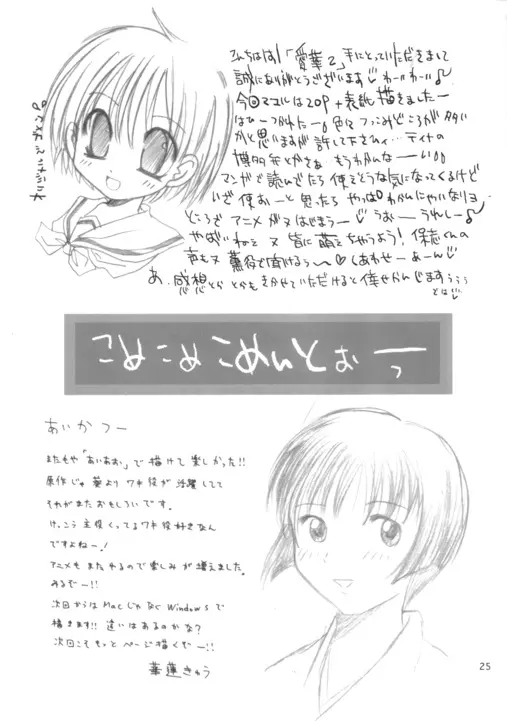 こんちはっ!「愛華2」手にとっていただきまして
誠にありがとうございます わーいわーい♪
今回マコルは20P+表紙描きましたー
はひーつかれたー 色々つっこみどころが多い
かと思いますが許して下さひ…ティナの
博多弁とかさぁ もうわかんなーい
マンガで読んでたら使えそうな気になってくるけど
いざ使おーと思ったらやっぱわかんにゃいなりヨ
ところでアニメが又はじまるー うおーうれしー♪
やばいねっ 又 皆に萌えちゃうよう! 保志くんの
声も又 薫役で聞けるぅ〜♡しあわせーあーん
あ、感想とかとかもきかせていただけると倖せかんじますぅぅぅ
とはい
こめ こめ こめいとぉーっ
あいかつー
またもや「あいあお」で描けて楽しかった!!
原作じゃ葵よりワキ役が活躍してて
それがまたおもしろいです。
けっこう主役くってるワキ役好きなん
ですよねー!
アニメもまたやるので楽しみが増えました。
みるぞー!!
次回からはMacじゃなくWindowsで
描きます!! 違いはあるのかな?
次回こそもっとページ描くぞー!!
華蓮きゅう
25